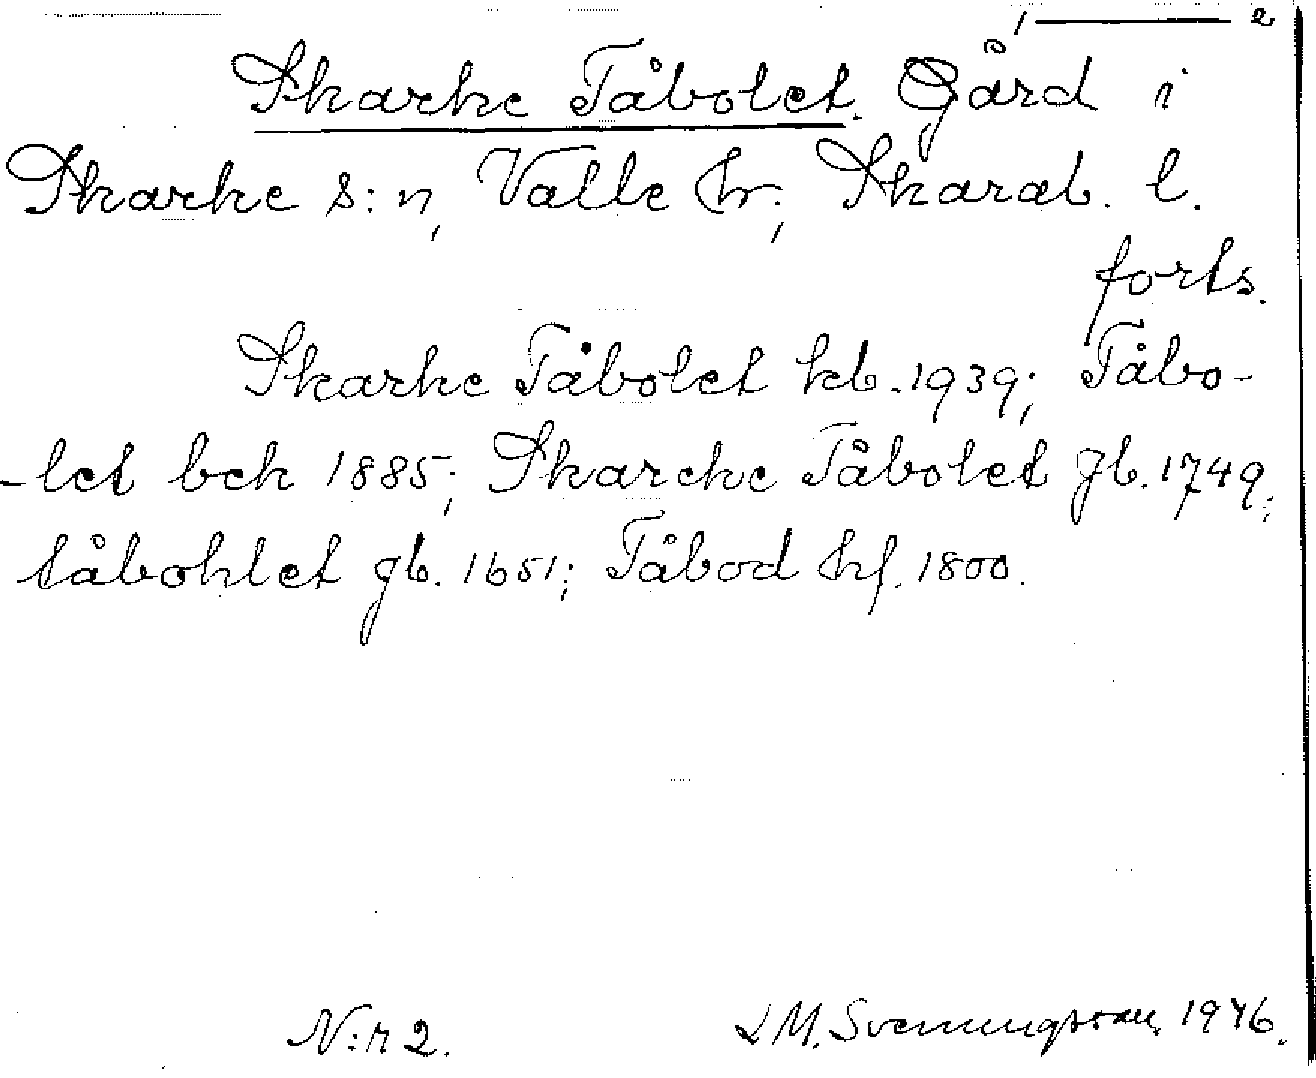 1 — 2
Skarke Tåbolet. Gård i
Skarke s:n, Valle hr; Skarab. l.
forts.
Skarke Tåbolet kb. 1939; Tåbo-
-let bek 1885; Skarcke Tåbolet Jb. 1749;
tåbohlet jb. 1651; Tåbod hf. 1800.
N:r 2. L M. Svenungsson, 1946.